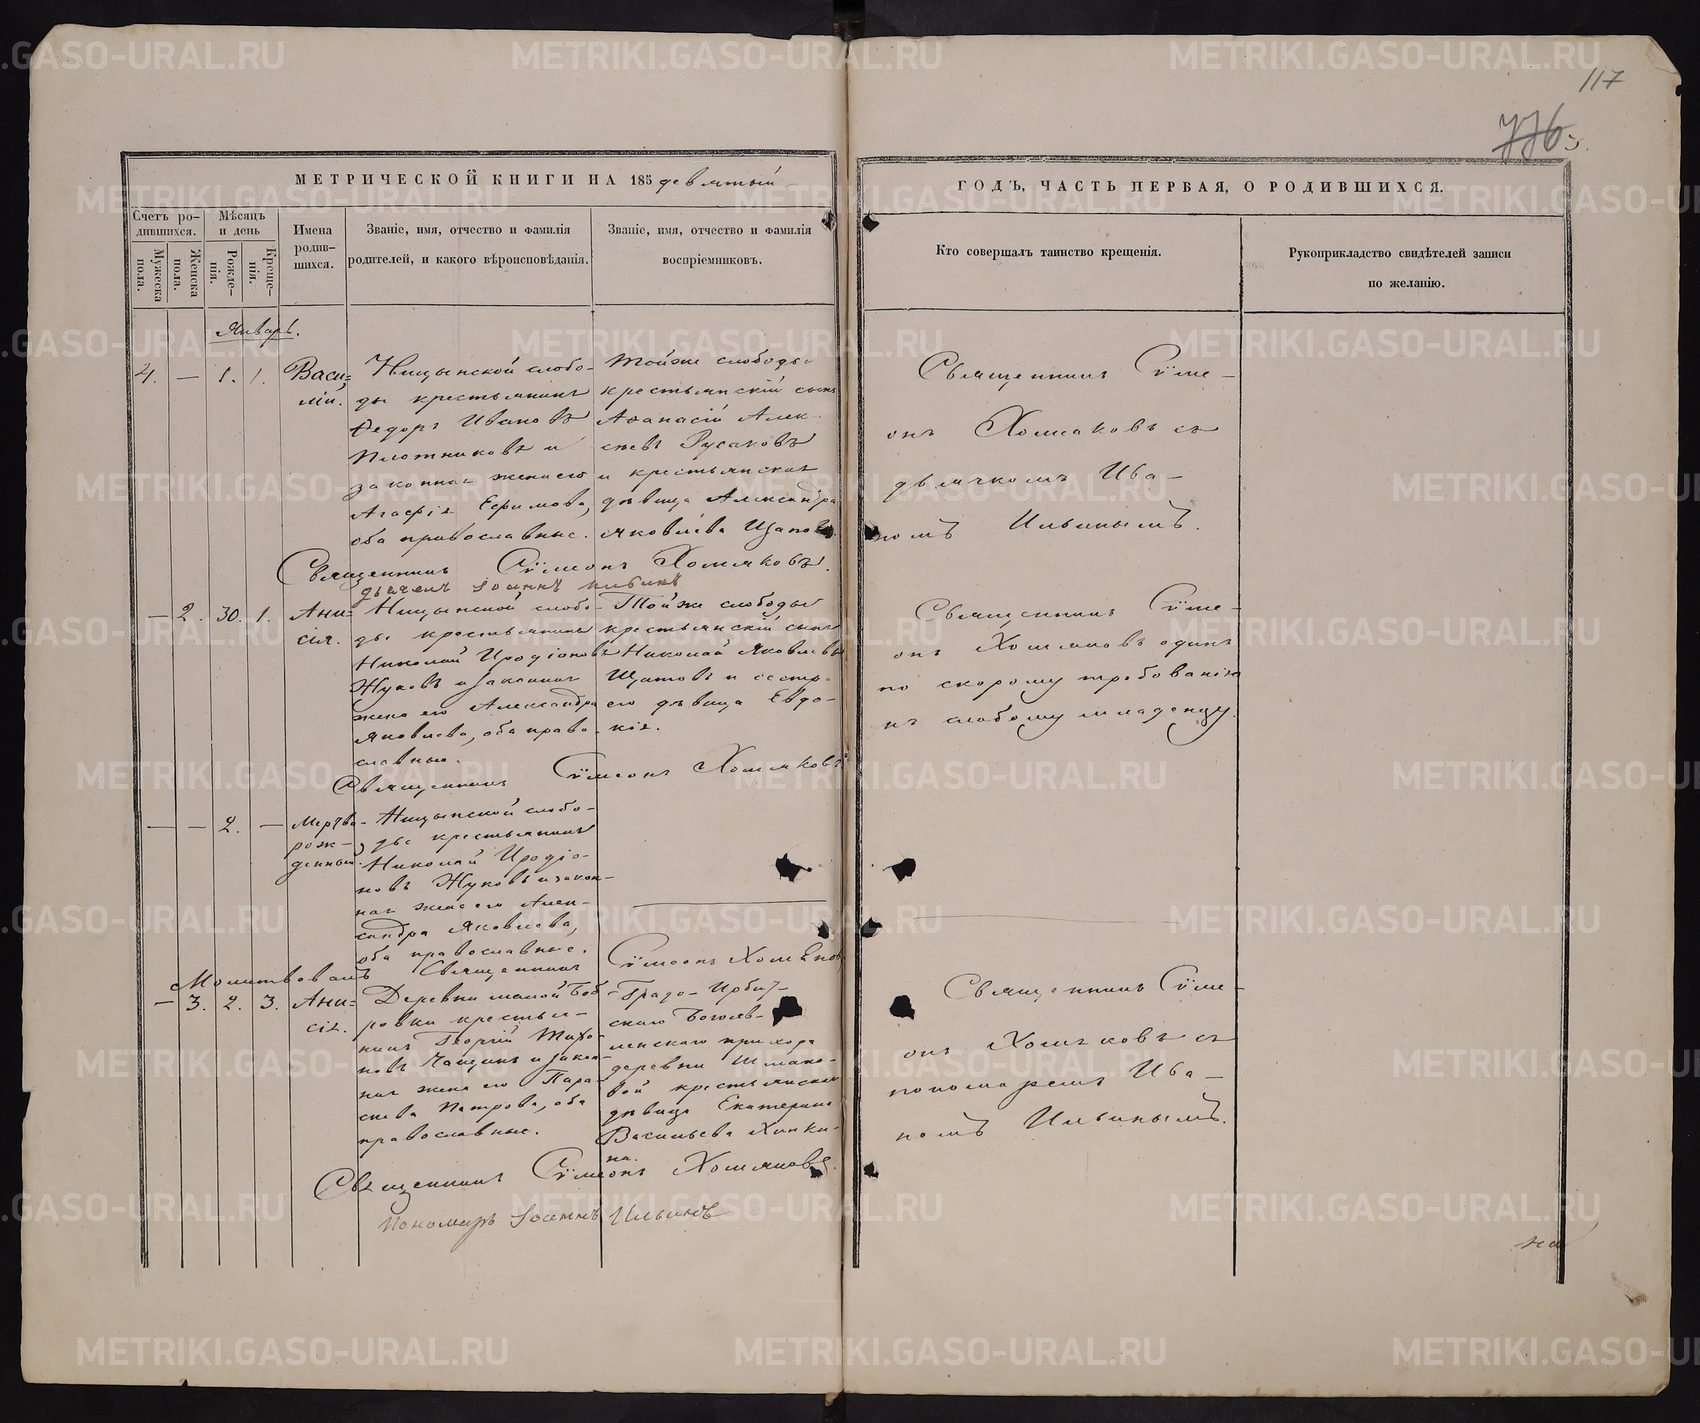 117
776
МЕТРИЧЕСКОЙ КНИГИ НА 185 девятый
ГОДЪ, ЧАСТЬ ПЕРВАЯ, О РОДИВШИХСЯ.
Счетъ ро-
дившихся.
Мужеска
пола.
Женска
пола.
Мѣсяцъ
и день
Рожде-
нія.
Креще-
нія.
Имена
родив-
шихся.
Званіе, имя, отчество и фамилія
родителей, и какого вѣроисповѣданія.
Званіе, имя, отчество и фамилія
воспріемниковъ.
Кто совершалъ таинство крещенія.
Рукоприкладство свидѣтелей записи
по желанію.
Январь.
4. — 1. 1.
Васи=
лій.
Ницынской слобо-
ды крестьянинъ
Ѳедоръ Ивановъ
Плотниковъ и
законная жена его
Агафія Ефимова,
оба православные.
Тойже слободы
крестьянскій сынъ
Аѳанасій Алек-
сѣевъ Русаковъ
и крестьянская
дѣвица Александра
Яковлева Щапова
Священникъ Сѵме-
онъ Хомяковъ съ
дьячкомъ Ива-
номъ Ильинымъ.
Священникъ Сѵмеонъ Хомяковъ.
дьячекъ Іоаннъ
— 2. 30. 1.
Ани-
сія.
Ницынской слобо-
ды крестьянинъ
Николай Иродіоновъ
Жуковъ и законная
жена его Александра
Яковлева, оба право-
славные.
Тойже слободы
крестьянскій сынъ
Николай Яковлевъ
Щаповъ и сестра
его дѣвица Евдо-
кія.
Священникъ Сѵме-
онъ Хомяковъ одинъ
по скорому требованію
къ слабому младенцу.
Священникъ Сѵмеонъ Хомяковъ
— — 2. —
Мертво-
рож-
денный.
Ницынской слобо-
ды крестьянинъ
Николай Иродіо-
новъ Жуковъ и закон-
ная жена его Алек-
сандра Яковлева,
оба православные.
Молитвовалъ Священникъ Сѵмеонъ Хомяковъ
— 3. 2. 3.
Ани=
сія.
Деревни малой Боб-
ровки крестья-
нинъ Георгій Тихо-
новъ Чащинъ и закон-
ная жена его Пара-
скева Петрова, оба
православные.
Градо-Ирбит-
скаго Богояв-
ленскаго прихода
деревни
вой крестьянская
дѣвица Екатерина
Васильева Хинки-
на.
Священникъ Сѵме-
онъ Хомяковъ съ
пономаремъ Ива-
номъ Ильинымъ.
Священникъ Сѵмеонъ Хомяковъ.
Пономарь Іоаннъ Ильинъ
METRIKI.GASO-URAL.RU